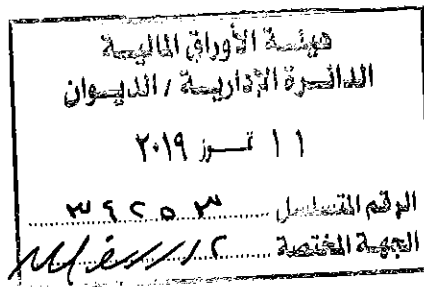 هيئة الأوراق المالية
الدائرة الإدارية / الديوان
١١ تموز ٢٠١٩
الرقم المتسلسل
الجهة المختصة